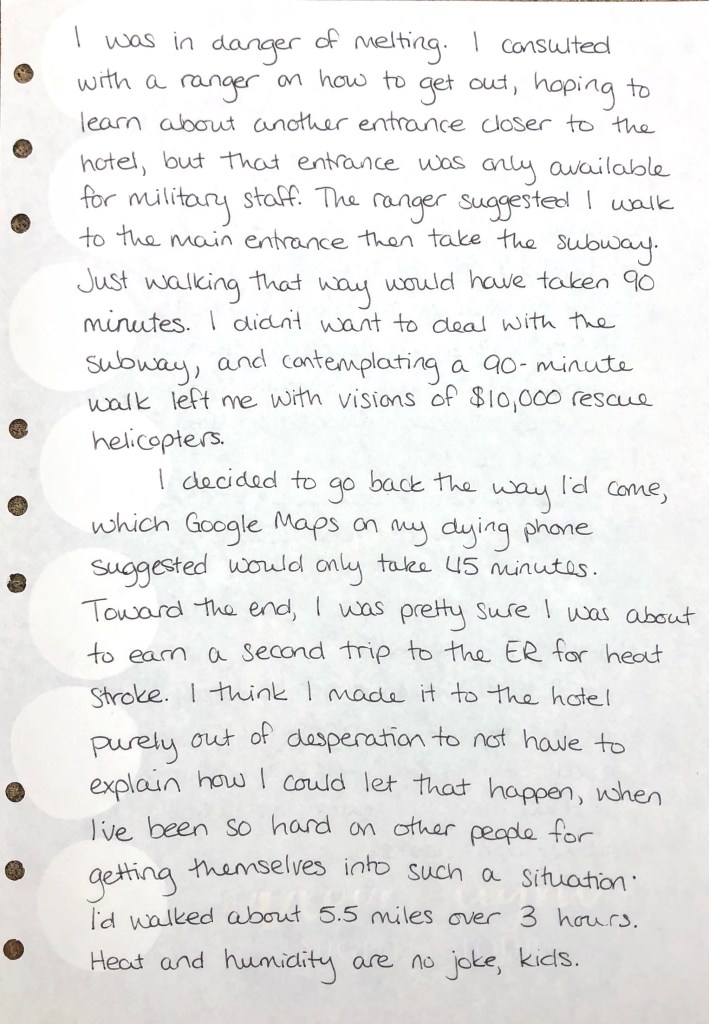 I was in danger of melting. I consulted
with a ranger on how to get out, hoping to
learn about another entrance closer to the
hotel, but that entrance was only available
for military staff. The ranger suggested I walk
to the main entrance then take the subway.
Just walking that way would have taken 90
minutes. I didn't want to deal with the
subway, and contemplating a 90-minute
walk left me with visions of $10,000 rescue
helicopters.
I decided to go back the way I'd come,
which Google Maps on my dying phone
suggested would only take 45 minutes.
Toward the end, I was pretty sure I was about
to earn a second trip to the ER for heat
stroke. I think I made it to the hotel
purely out of desperation to not have to
explain how I could let that happen, when
I've been so hard on other people for
getting themselves into such a situation.
I'd walked about 5.5 miles over 3 hours.
Heat and humidity are no joke, kids.